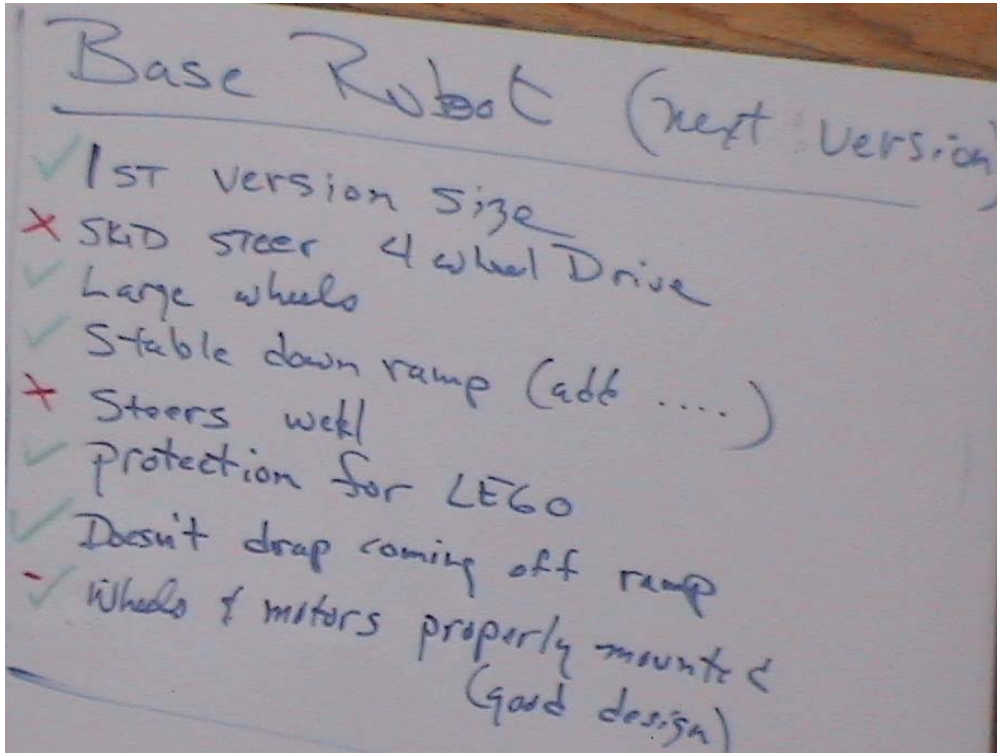 Base Robot (next version)
✓ 1ST version size
✗ SKID steer 4 wheel Drive
✓ Large wheels
✓ Stable down ramp (add ....)
✗ Steers well
✓ protection for LEGO
✓ Doesn't drap coming off ramp
-✓ Wheels & motors properly mounted
(good design)